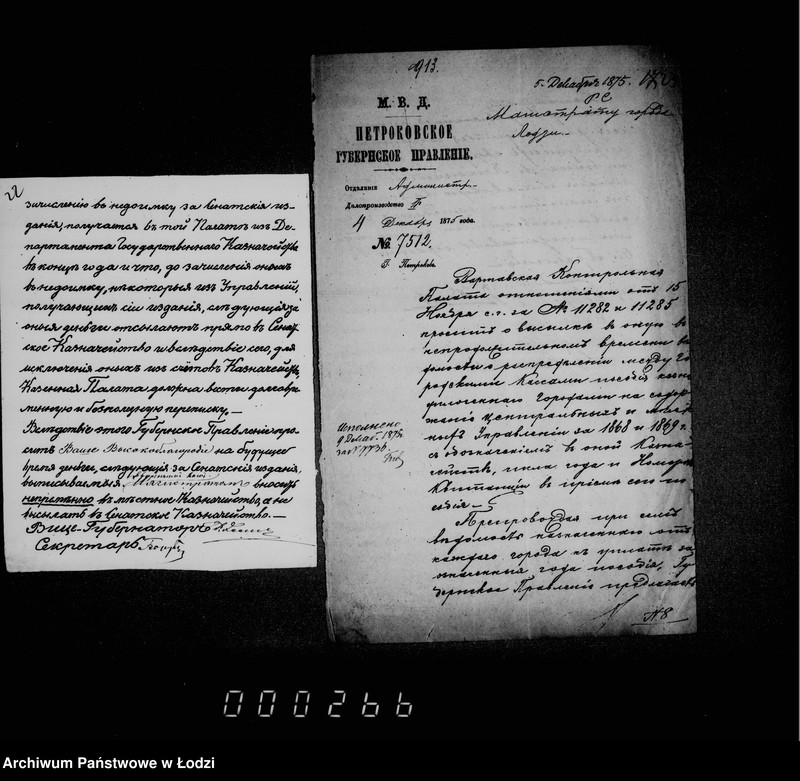 22
зачисленію въ недоимку за Сенатскія из-
данія, получается въ той Палатѣ изъ Де-
партамента Государственнаго Казначейства
въ концѣ года и что, до зачисленія оныхъ
въ недоимку, нѣкоторыя изъ Управленій,
получающихъ сіи изданія, слѣдующія за
оныя деньги отсылаютъ прямо въ Сенат-
ское Казначейство и вслѣдствіе сего, для
исключенія оныхъ изъ счетовъ Казначейства,
Казенная Палата должна вести долговре-
менную и безполезную переписку.—
Вслѣдствіе этого Губернское Правленіе про-
ситъ Ваше Высокоблагородіе на будущее
время деньги, слѣдующія за Сенатскія изданія,
выписываемыя Магистратомъ вносить
непремѣнно въ мѣстное Казначейство, а не
высылать въ Сенатское Казначейство.—
Вице-Губернаторъ
Секретарь
913.
5. Декабря 1875.
М. В. Д.
ПЕТРОКОВСКОЕ
ГУБЕРНСКОЕ ПРАВЛЕНІЕ.
Отдѣленія Администр.
Дѣлопроизводство II
4 Декабря 1875 года.
№ 7512.
Г. Петроковъ.
Магистрату города
Лодзи.—
Варшавская Контрольная
Палата отношеніями отъ 15
Ноября с.г. за № 11282 и 11285
проситъ о высылкѣ въ оную въ
непродолжительномъ времени вѣ-
домости о распредѣленіи между Го-
родскими Кассами пособія
городами на содер-
жаніе центральныхъ и
Управленій за 1868 и 1869 г.
съ обозначеніемъ въ оной Казна-
чействъ, числа года и Номера
квитанціи въ пріемѣ
Исполнено
9 Декаб. 1875
за № 7736.
Препровождая при семъ
вѣдомость назначеннаго отъ
каждаго города къ уплатѣ за
означенныя года пособія, Гу-
бернское Правленіе предлагаетъ
№ 8
000266
Archiwum Państwowe w Łodzi